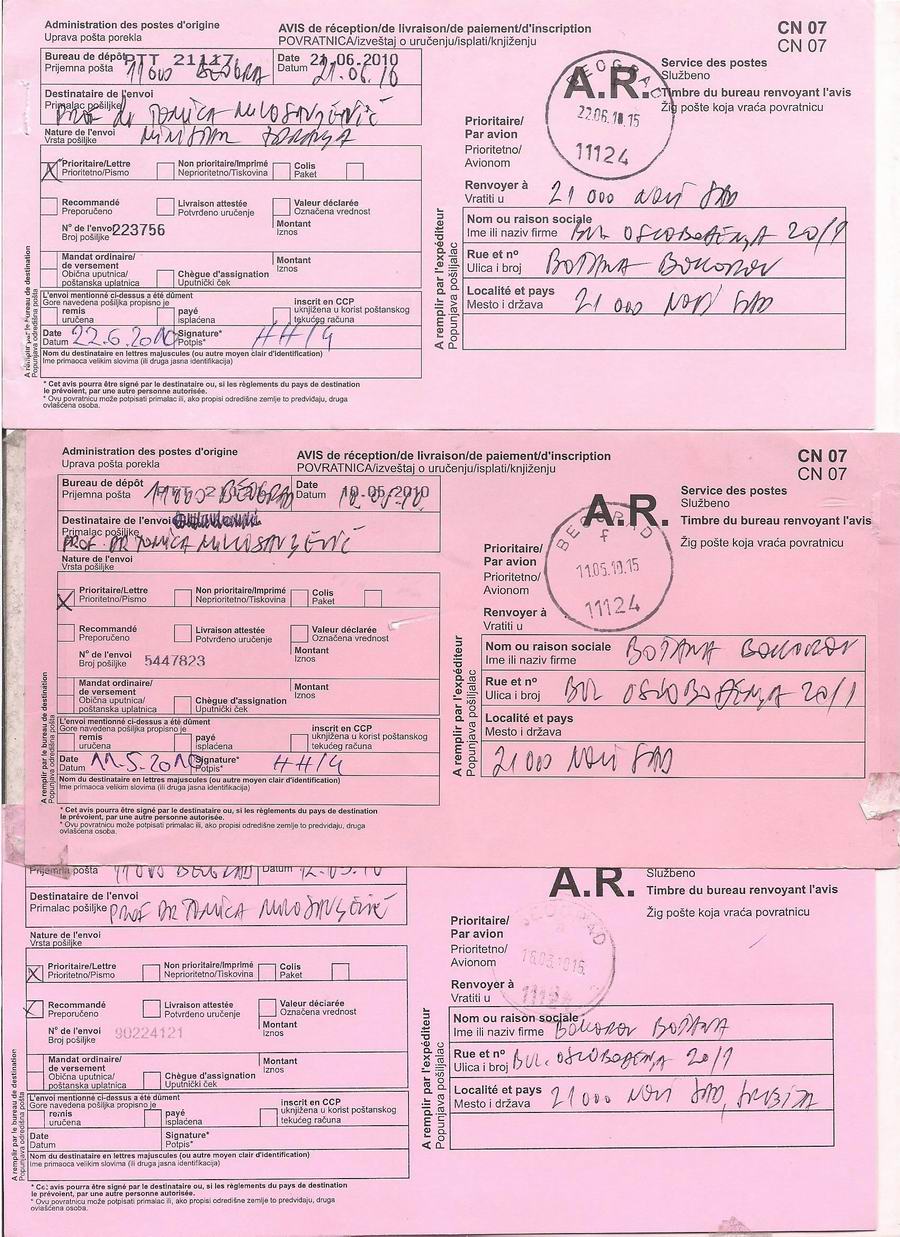 Administration des postes d'origine
Uprava pošta porekla
AVIS de réception/de livraison/de paiement/d'inscription
POVRATNICA/izveštaj o uručenju/isplati/knjiženju
CN 07
CN 07
Bureau de dépôt PTT 21117
Prijemna pošta 11000 BEOGRAD
Date 21.06.2010
Datum 21.06.10
Destinataire de l'envoi
Primalac pošiljke PROF dr TOMICA MILOSAVLJEVIĆ
Nature de l'envoi
Vrsta pošiljke MINISTAR ZDRAVLJA
X Prioritaire/Lettre
Prioritetno/Pismo
Non prioritaire/Imprimé
Neprioritetno/Tiskovina
Colis
Paket
Recommandé
Preporučeno
Livraison attestée
Potvrđeno uručenje
Valeur déclarée
Označena vrednost
N° de l'envoi
Broj pošiljke 223756
Montant
Iznos
Mandat ordinaire/
de versement
Obična uputnica/
poštanska uplatnica
Chègue d'assignation
Uputnički ček
Montant
Iznos
L'envoi mentionné ci-dessus a été dûment
Gore navedena pošiljka propisno je
remis
uručena
payé
isplaćena
inscrit en CCP
uknjižena u korist poštanskog
tekućeg računa
Date
Datum 22.6.2010
Signature*
Potpis*
Nom du destinataire en lettres majuscules (ou autre moyen clair d'identification)
Ime primaoca velikim slovima (ili druga jasna identifikacija)
* Cet avis pourra être signé par le destinataire ou, si les règlements du pays de destination
le prévoient, par une autre personne autorisée.
* Ovu povratnicu može potpisati primalac ili, ako propisi odredišne zemlje to predviđaju, druga
ovlašćena osoba.
A remplir par le bureau de destination
Popunjava odredišna pošta
A.R.
BEOGRAD
22.06.10.15
11124
Service des postes
Službeno
Timbre du bureau renvoyant l'avis
Žig pošte koja vraća povratnicu
Prioritaire/
Par avion
Prioritetno/
Avionom
Renvoyer à
Vratiti u 21 000 NOVI SAD
Nom ou raison sociale
Ime ili naziv firme BUL OSLOBOĐENJA 20/1
Rue et n°
Ulica i broj BOJANA BOKOROV
Localité et pays
Mesto i država 21 000 NOVI SAD
A remplir par l'expéditeur
Popunjava pošiljalac
Administration des postes d'origine
Uprava pošta porekla
AVIS de réception/de livraison/de paiement/d'inscription
POVRATNICA/izveštaj o uručenju/isplati/knjiženju
CN 07
CN 07
Bureau de dépôt
Prijemna pošta 11000 BEOGRAD
Date
Datum 10.05.2010
Destinataire de l'envoi
Primalac pošiljke
PROF. DR TOMICA MILOSAVLJEVIĆ
Nature de l'envoi
Vrsta pošiljke
X Prioritaire/Lettre
Prioritetno/Pismo
Non prioritaire/Imprimé
Neprioritetno/Tiskovina
Colis
Paket
Recommandé
Preporučeno
Livraison attestée
Potvrđeno uručenje
Valeur déclarée
Označena vrednost
N° de l'envoi
Broj pošiljke 5447823
Montant
Iznos
Mandat ordinaire/
de versement
Obična uputnica/
poštanska uplatnica
Chègue d'assignation
Uputnički ček
Montant
Iznos
L'envoi mentionné ci-dessus a été dûment
Gore navedena pošiljka propisno je
remis
uručena
payé
isplaćena
inscrit en CCP
uknjižena u korist poštanskog
tekućeg računa
Date
Datum 11.5.2010
Signature*
Potpis*
Nom du destinataire en lettres majuscules (ou autre moyen clair d'identification)
Ime primaoca velikim slovima (ili druga jasna identifikacija)
* Cet avis pourra être signé par le destinataire ou, si les règlements du pays de destination
le prévoient, par une autre personne autorisée.
* Ovu povratnicu može potpisati primalac ili, ako propisi odredišne zemlje to predviđaju, druga
ovlašćena osoba.
A remplir par le bureau de destination
Popunjava odredišna pošta
A.R.
BEOGRAD
f
11.05.10.15
11124
Service des postes
Službeno
Timbre du bureau renvoyant l'avis
Žig pošte koja vraća povratnicu
Prioritaire/
Par avion
Prioritetno/
Avionom
Renvoyer à
Vratiti u
Nom ou raison sociale
Ime ili naziv firme BOJANA BOKOROV
Rue et n°
Ulica i broj BUL OSLOBOĐENJA 20/1
Localité et pays
Mesto i država
21 000 NOVI SAD
A remplir par l'expéditeur
Popunjava pošiljalac
Prijemna pošta 11000 BEOGRAD
Datum 12.03.10
Destinataire de l'envoi
Primalac pošiljke PROF DR TOMICA MILOSAVLJEVIĆ
Nature de l'envoi
Vrsta pošiljke
X Prioritaire/Lettre
Prioritetno/Pismo
Non prioritaire/Imprimé
Neprioritetno/Tiskovina
Colis
Paket
X Recommandé
Preporučeno
Livraison attestée
Potvrđeno uručenje
Valeur déclarée
Označena vrednost
N° de l'envoi
Broj pošiljke 90224121
Montant
Iznos
Mandat ordinaire/
de versement
Obična uputnica/
poštanska uplatnica
Chègue d'assignation
Uputnički ček
Montant
Iznos
L'envoi mentionné ci-dessus a été dûment
Gore navedena pošiljka propisno je
remis
uručena
payé
isplaćena
inscrit en CCP
uknjižena u korist poštanskog
tekućeg računa
Date
Datum
Signature*
Potpis*
Nom du destinataire en lettres majuscules (ou autre moyen clair d'identification)
Ime primaoca velikim slovima (ili druga jasna identifikacija)
* Cet avis pourra être signé par le destinataire ou, si les règlements du pays de destination
le prévoient, par une autre personne autorisée.
* Ovu povratnicu može potpisati primalac ili, ako propisi odredišne zemlje to predviđaju, druga
ovlašćena osoba.
A remplir par le bureau de destination
Popunjava odredišna pošta
A.R.
BEOGRAD
Službeno
Timbre du bureau renvoyant l'avis
Žig pošte koja vraća povratnicu
Prioritaire/
Par avion
Prioritetno/
Avionom
Renvoyer à
Vratiti u
Nom ou raison sociale
Ime ili naziv firme BOKOROV BOJANA
Rue et n°
Ulica i broj BUL. OSLOBOĐENJA 20/1
Localité et pays
Mesto i država 21000 NOVI SAD, SRBIJA
A remplir par l'expéditeur
Popunjava pošiljalac